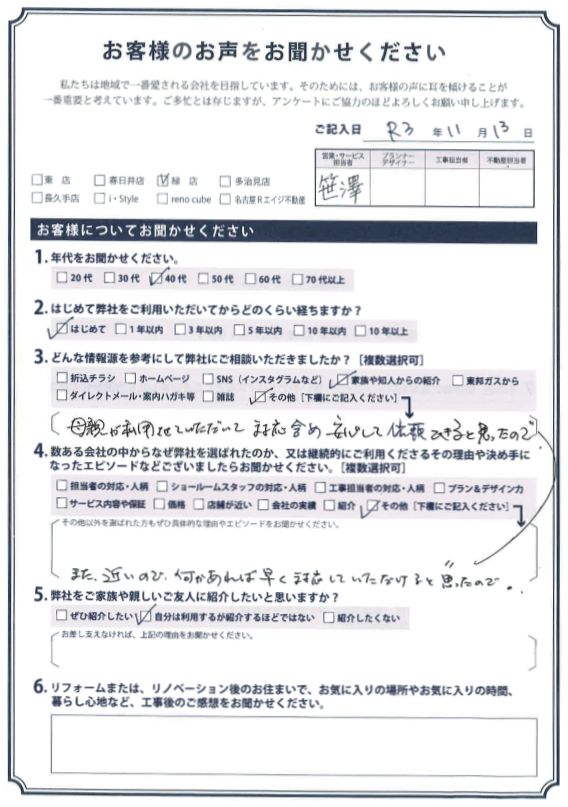 お客様のお声をお聞かせください
私たちは地域で一番愛される会社を目指しています。そのためには、お客様の声に耳を傾けることが
一番重要と考えています。ご多忙とは存じますが、アンケートにご協力のほどよろしくお願い申し上げます。
ご記入日 R3 年 11 月 13 日
営業・サービス担当者 プランナーデザイナー 工事担当者 不動産担当者
笹澤
□東 店 □春日井店 ☑緑 店 □多治見店
□長久手店 □i・Style □reno cube □名古屋Rエイジ不動産
お客様についてお聞かせください
1. 年代をお聞かせください。
□20代 □30代 ☑40代 □50代 □60代 □70代以上
2. はじめて弊社をご利用いただいてからどのくらい経ちますか？
☑はじめて □1年以内 □3年以内 □5年以内 □10年以内 □10年以上
3. どんな情報源を参考にして弊社にご相談いただきましたか？［複数選択可］
□折込チラシ □ホームページ □SNS（インスタグラムなど） ☑家族や知人からの紹介 □東邦ガスから
□ダイレクトメール・案内ハガキ等 □雑誌 ☑その他［下欄にご記入ください］
母親が利用させていただいて 対応含め 安心して 依頼できると思ったので
4. 数ある会社の中からなぜ弊社を選ばれたのか、又は継続的にご利用くださるその理由や決め手に
なったエピソードなどございましたらお聞かせください。［複数選択可］
□担当者の対応・人柄 □ショールームスタッフの対応・人柄 □工事担当者の対応・人柄 □プラン＆デザイン力
□サービス内容や保証 □価格 □店舗が近い □会社の実績 □紹介 ☑その他［下欄にご記入ください］
その他以外を選ばれた方もぜひ具体的な理由やエピソードをお聞かせください。
また、近いので、何かあれば早く対応していただけると思ったので。
5. 弊社をご家族や親しいご友人に紹介したいと思いますか？
□ぜひ紹介したい ☑自分は利用するが紹介するほどではない □紹介したくない
お差し支えなければ、上記の理由をお聞かせください。
6. リフォームまたは、リノベーション後のお住まいで、お気に入りの場所やお気に入りの時間、
暮らし心地など、工事後のご感想をお聞かせください。